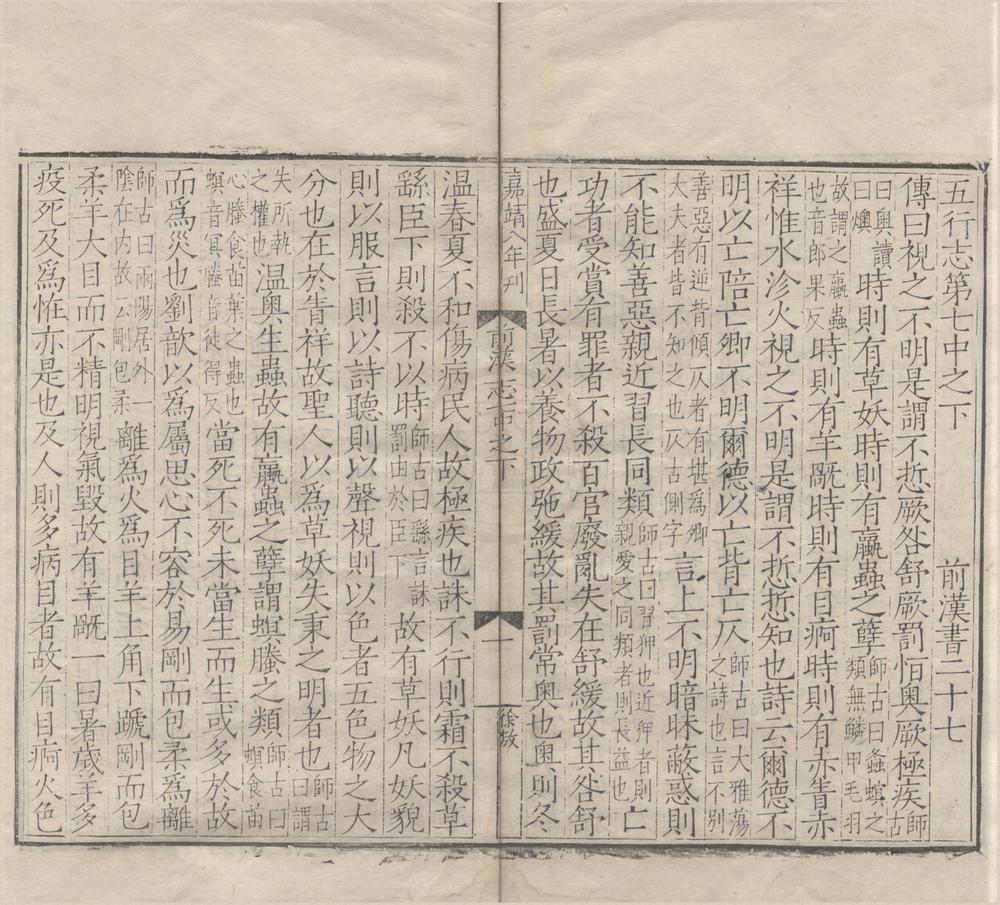 五行志第七中之下　前漢書二十七
傳曰視之不明是謂不悊厥咎舒厥罰恒奧厥極疾師古
曰奧讀曰燠時則有草妖時則有蠃蟲之孽師古曰螽螟之類無鱗甲毛羽
故謂之蠃蟲也音郎果反時則有羊旤時則有目痾時則有赤眚赤
祥惟水沴火視之不明是謂不悊悊知也詩云爾德不
明以亡陪亡卿不明爾德以亡背亡仄師古曰大雅蕩之詩也言不别
善惡有逆背傾仄者有堪爲卿大夫者皆不知之也仄古側字言上不明暗昧蔽惑則
不能知善惡親近習長同類師古曰習狎也近狎者則親愛之同類者則長益也亡
功者受賞有罪者不殺百官廢亂失在舒緩故其咎舒
也盛夏日長暑以養物政弛緩故其罰常奧也奧則冬
嘉靖八年刊　前漢志七中之下　一　徐敖
温春夏不和傷病民人故極疾也誅不行則霜不殺草
繇臣下則殺不以時師古曰繇言誅罰由於臣下故有草妖凡妖貌
則以服言則以詩聽則以聲視則以色者五色物之大
分也在於眚祥故聖人以爲草妖失秉之明者也師古曰謂
失所執之權也温奧生蟲故有蠃蟲之孽謂螟螣之類師古曰螟食苗
心螣食苗葉之蟲也螟音冥螣音徒得反當死不死未當生而生或多於故
而爲災也劉歆以爲屬思心不容於易剛而包柔爲離
師古曰兩陽居外一陰在内故云剛包柔離爲火爲目羊上角下蹏剛而包
柔羊大目而不精明視氣毁故有羊旤一曰暑歲羊多
疫死及爲怪亦是也及人則多病目者故有目痾火色